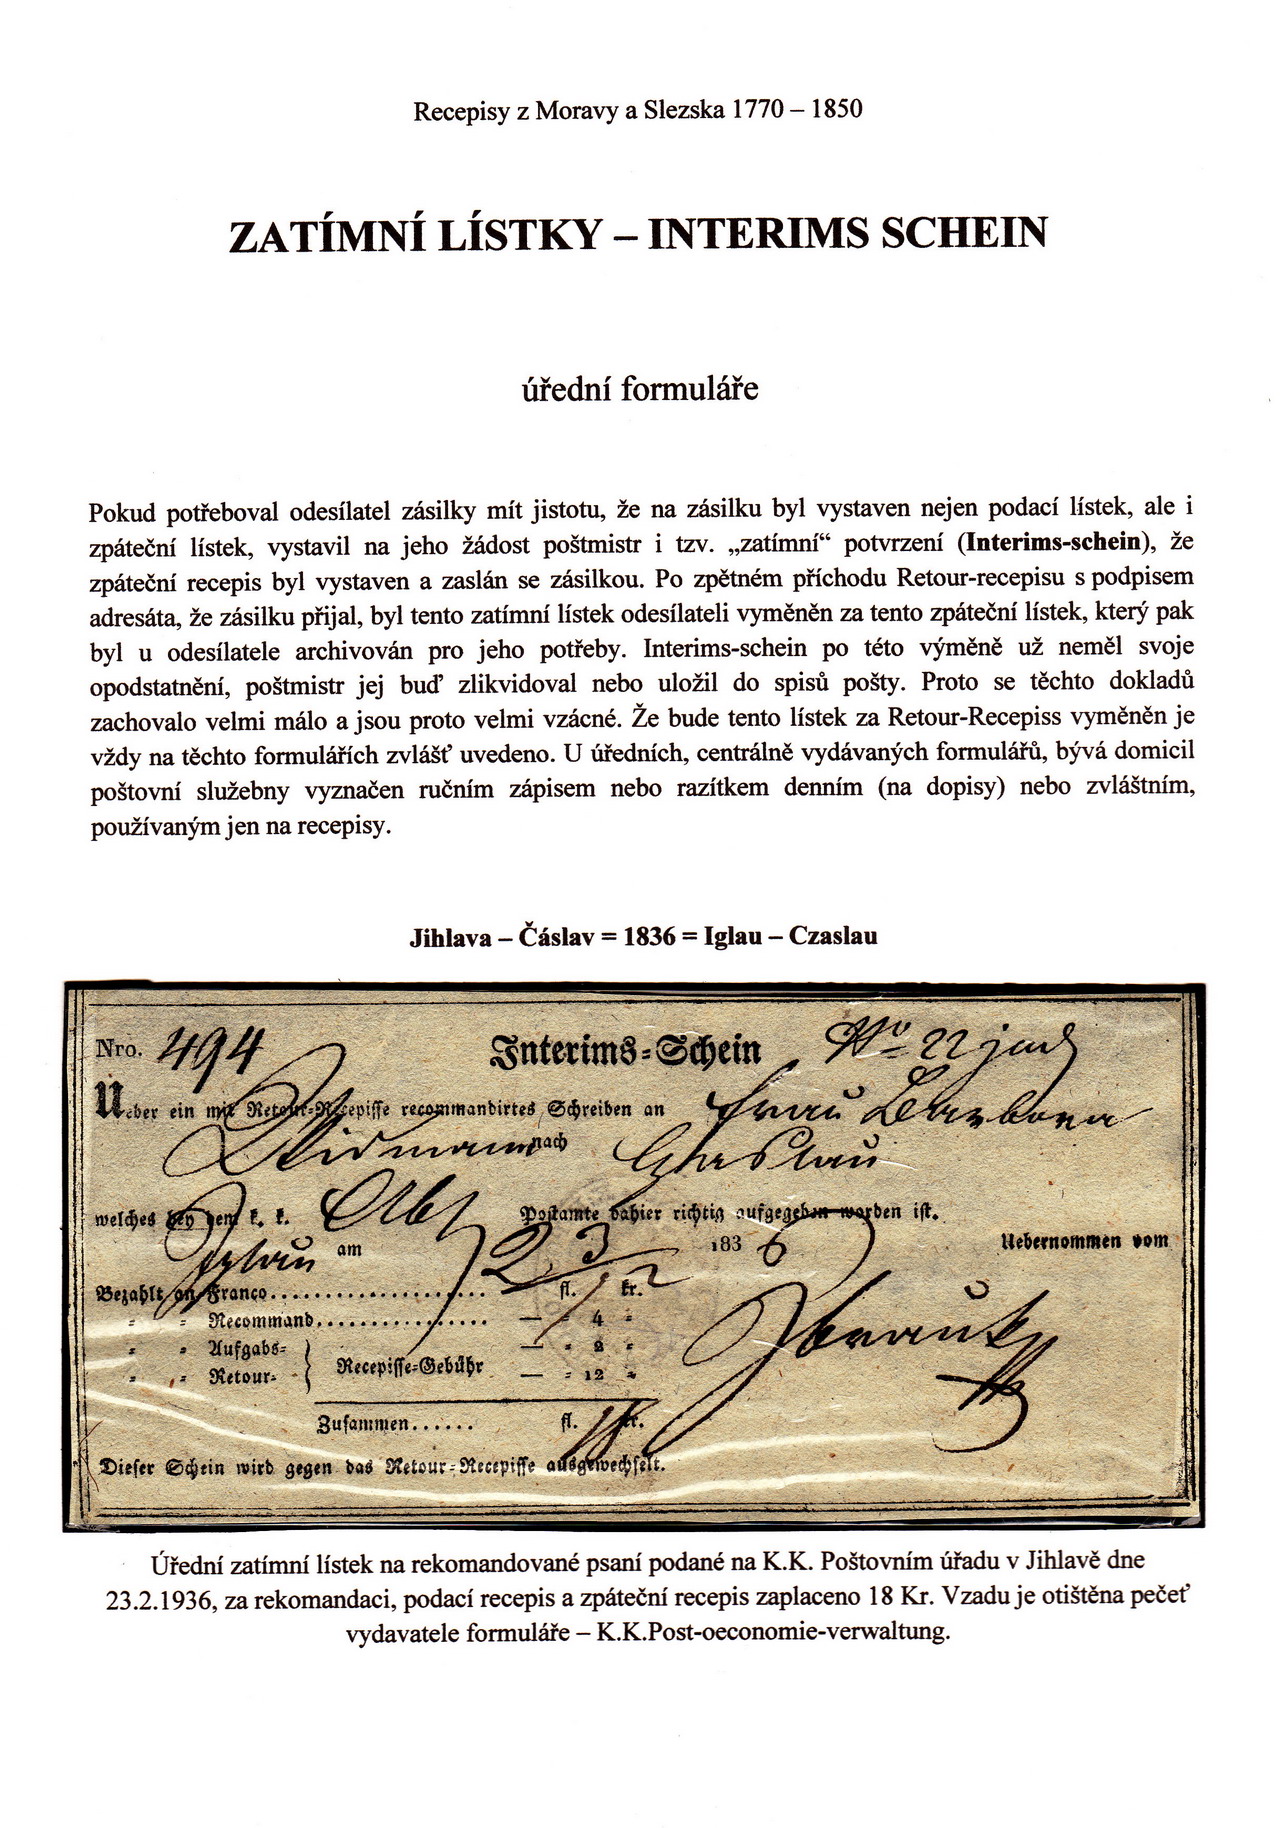 Recepisy z Moravy a Slezska 1770 – 1850
ZATÍMNÍ LÍSTKY – INTERIMS SCHEIN
úřední formuláře
Pokud potřeboval odesílatel zásilky mít jistotu, že na zásilku byl vystaven nejen podací lístek, ale i
zpáteční lístek, vystavil na jeho žádost poštmistr i tzv. „zatímní“ potvrzení (Interims-schein), že
zpáteční recepis byl vystaven a zaslán se zásilkou. Po zpětném příchodu Retour-recepisu s podpisem
adresáta, že zásilku přijal, byl tento zatímní lístek odesílateli vyměněn za tento zpáteční lístek, který pak
byl u odesílatele archivován pro jeho potřeby. Interims-schein po této výměně už neměl svoje
opodstatnění, poštmistr jej buď zlikvidoval nebo uložil do spisů pošty. Proto se těchto dokladů
zachovalo velmi málo a jsou proto velmi vzácné. Že bude tento lístek za Retour-Recepiss vyměněn je
vždy na těchto formulářích zvlášť uvedeno. U úředních, centrálně vydávaných formulářů, bývá domicil
poštovní služebny vyznačen ručním zápisem nebo razítkem denním (na dopisy) nebo zvláštním,
používaným jen na recepisy.
Jihlava – Čáslav = 1836 = Iglau – Czaslau
Nro. 494 Interims-Schein
Ueber ein mit Retour-Recepisse recommandirtes Schreiben an Frau Barbora
Widmann nach Czaslau
welches bey dem k. k. Postamte dahier richtig aufgegeben worden ist.
Iglau am 23/2 1836 Uebernommen vom
Bezahlt an Franco.................... fl. kr.
" " Recommand................ — " 4 "
" " Aufgabs- } Recepisse-Gebühr — " 2 "
" " Retour- — " 12 "
Zusammen...... fl. 18 kr.
Dieser Schein wird gegen das Retour-Recepisse ausgewechselt.
Úřední zatímní lístek na rekomandované psaní podané na K.K. Poštovním úřadu v Jihlavě dne
23.2.1936, za rekomandaci, podací recepis a zpáteční recepis zaplaceno 18 Kr. Vzadu je otištěna pečeť
vydavatele formuláře – K.K.Post-oeconomie-verwaltung.